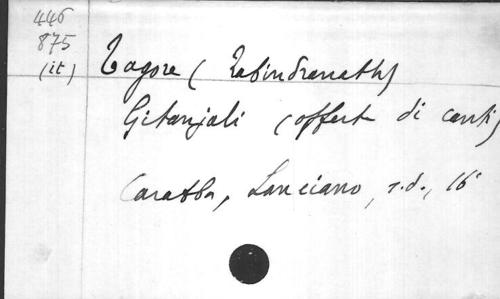 446
875
(it)
Tagore (Rabindranath)
Gitanjali (offerta di canti)
Carabba, Lanciano, s.d., 16°